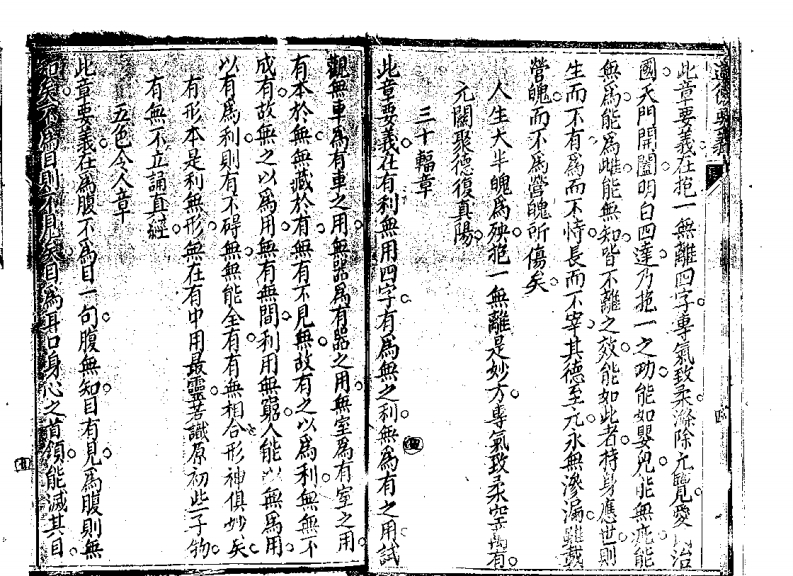 道德要義
此章要義在抱一無離四字專氣致柔滌除元覽愛 治
國天門開闔明白四達乃抱一之功能如嬰兒能無疵能
無為能為雌能無知皆不離之效能如此者持身應世則
生而不有為而不恃長而不宰其德至元永無滲漏雖載
營魄而不為營魄所傷矣
人生大半魄為殃抱一無離是妙方專氣致柔空 有
元關聚德復真陽
三十輻章
此章要義在有利無用四字有為無之利無為有之用試
觀無車為有車之用無器為有器之用無室為有室之用
有本於無無藏於有無有不見無故有之以為利無無不
成有故無之以為用無有無間利用無窮人能以無為用
以有為利則有不碍無無能全有有無相合形神俱妙矣
有形本是利無形無在有中用最靈若識原初些子物
有無不立誦真經
五色令人章
此章要義在為腹不為目一句腹無知目有見為腹則無
知矣不為目則不見矣目為耳口身心之首領能滅其目